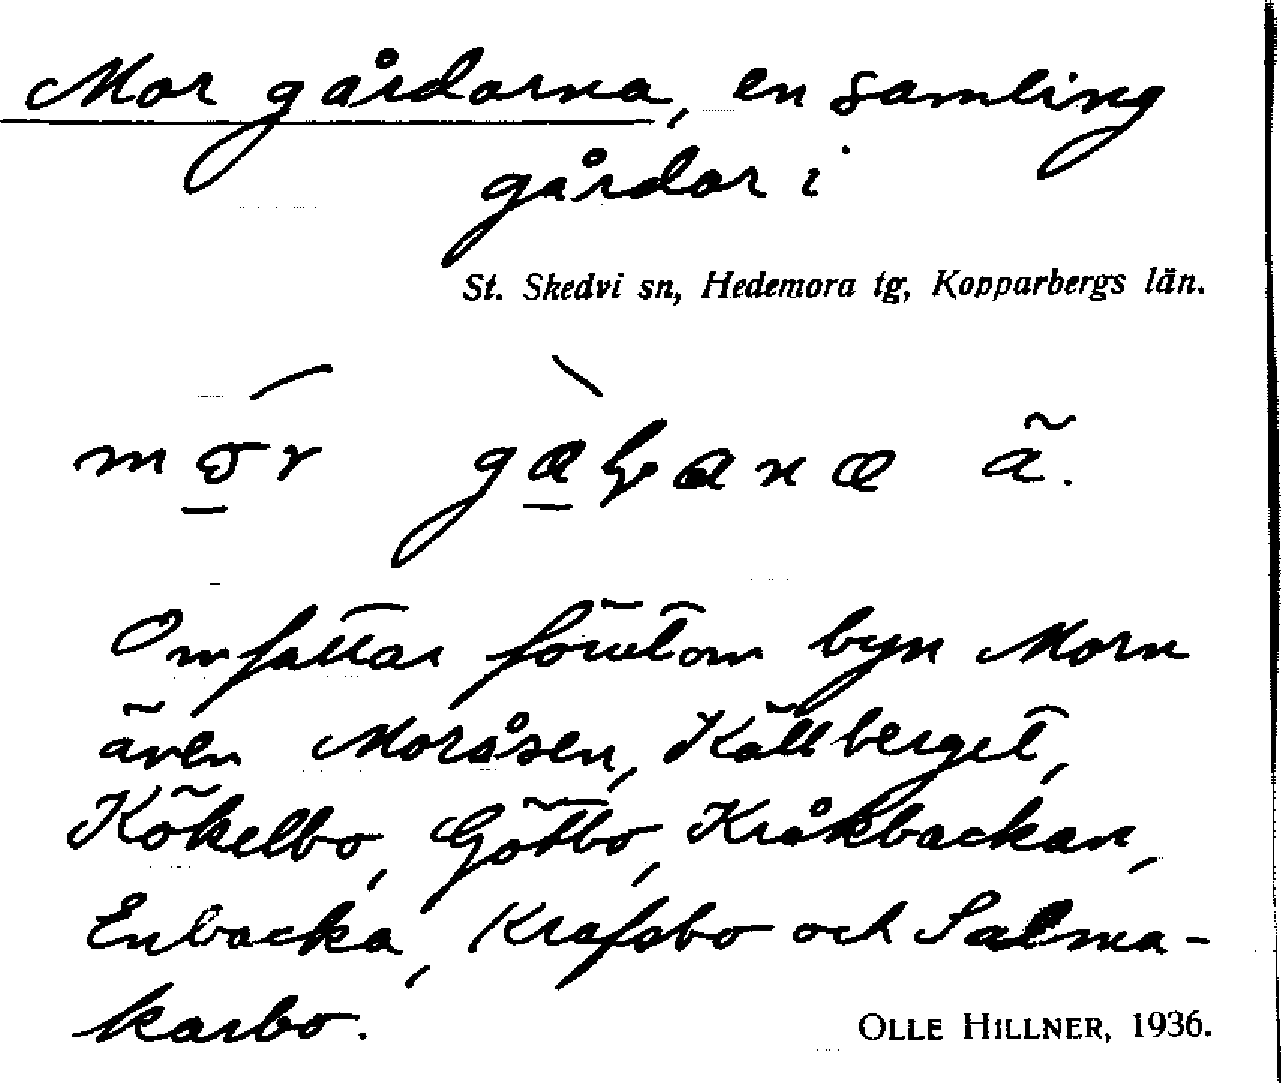 Mor gårdarna, en samling
gårdar i
St. Skedvi sn, Hedemora tg, Kopparbergs län.
ã.
Omfattar förutom byn Morn
även Moråsen, Källberget,
Kökelbo, Götbo, Kråkbackan,
Enbacka, Krafsbo och Salma-
karbo.
OLLE HILLNER, 1936.